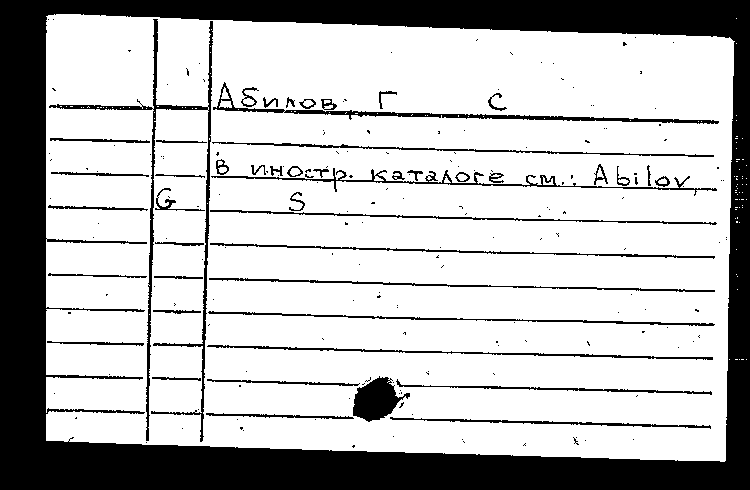 Абилов, Г С
В иностр. каталоге см.: Abilov,
G S